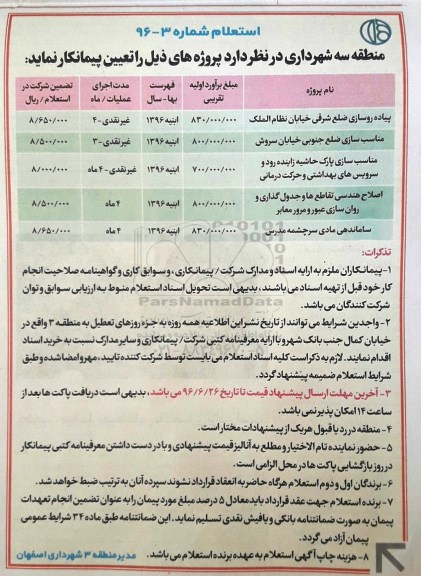 استعلام شماره ۳-۹۶
منطقه سه شهرداری در نظر دارد پروژه های ذیل را تعیین پیمانکار نماید:
نام پروژه | مبلغ برآورد اولیه تقریبی | فهرست بها - سال | مدت اجرای عملیات / ماه | تضمین شرکت در استعلام / ریال
پیاده روسازی ضلع شرقی خیابان نظام الملک | ۸۳۰/۰۰۰/۰۰۰ | ابنیه ۱۳۹۶ | غیر نقدی - ۴ | ۸/۶۵۰/۰۰۰
مناسب سازی ضلع جنوبی خیابان سروش | ۸۰۰/۰۰۰/۰۰۰ | ابنیه ۱۳۹۶ | غیر نقدی - ۳ | ۸/۵۰۰/۰۰۰
مناسب سازی پارک حاشیه زاینده رود و سرویس های بهداشتی و حرکت درمانی | ۷۰۰/۰۰۰/۰۰۰ | ابنیه ۱۳۹۶ | غیر نقدی - ۴ ماه | ۸/۰۰۰/۰۰۰
اصلاح هندسی تقاطع ها و جدول گذاری و روان سازی عبور و مرور معابر | ۸۰۰/۰۰۰/۰۰۰ | ابنیه ۱۳۹۶ | ۴ ماه | ۸/۵۰۰/۰۰۰
ساماندهی مادی سرچشمه مدرس | ۸۳۰/۰۰۰/۰۰۰ | ابنیه ۱۳۹۶ | ۴ ماه | ۸/۶۵۰/۰۰۰
تذکرات:
۱- پیمانکاران ملزم به ارایه اسناد و مدارک شرکت / پیمانکاری، و سوابق کاری و گواهینامه صلاحیت انجام
کار خود قبل از تهیه اسناد می باشند، بدیهی است تحویل اسناد استعلام منوط به ارزیابی سوابق و توان
شرکت کنندگان می باشد.
ParsNamadData
۲- واجدین شرایط می توانند از تاریخ نشر این اطلاعیه همه روزه به جز روزهای تعطیل به منطقه ۳ واقع در
خیابان کمال جنب بانک شهر با ارایه معرفینامه کتبی شرکت / پیمانکاری و سایر مدارک نسبت به خرید اسناد
اقدام نمایند. لازم به ذکر است کلیه اسناد استعلام می بایست توسط شرکت کننده تایید، مهر و امضا شده و طبق
شرایط استعلام ضمیمه پیشنهاد گردد.
۳- آخرین مهلت ارسال پیشنهاد قیمت تا تاریخ ۹۶/۶/۲۶ می باشد، بدیهی است دریافت پاکت ها بعد از
ساعت ۱۴ امکان پذیر نمی باشد.
۴- منطقه در رد یا قبول هریک از پیشنهادات مختار است.
۵- حضور نماینده تام الاختیار و مطلع به آنالیز قیمت پیشنهادی و با در دست داشتن معرفینامه کتبی پیمانکار
در روز بازگشایی پاکت ها در محل الزامی است.
۶- برندگان اول و دوم استعلام هرگاه حاضر به انعقاد قرارداد نشوند سپرده آنان به ترتیب ضبط خواهد شد.
۷- برنده استعلام جهت عقد قرارداد باید معادل ۵ درصد مبلغ مورد پیمان را به عنوان تضمین انجام تعهدات
پیمان به صورت ضمانتنامه بانکی و یا فیش نقدی تسلیم نماید. این ضمانتنامه طبق ماده ۳۴ شرایط عمومی
پیمان آزاد می گردد.
۸- هزینه چاپ آگهی استعلام به عهده برنده استعلام می باشد.
مدیر منطقه ۳ شهرداری اصفهان